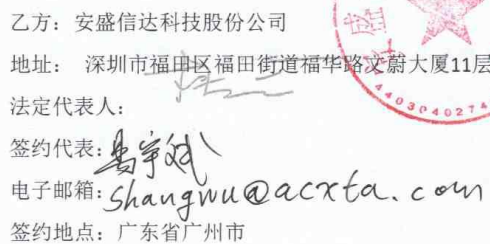 乙方：安盛信达科技股份公司
地址： 深圳市福田区福田街道福华路文蔚大厦11层
法定代表人：
签约代表：
电子邮箱：shangwu@acxta.com
签约地点：广东省广州市
盛
4403040274